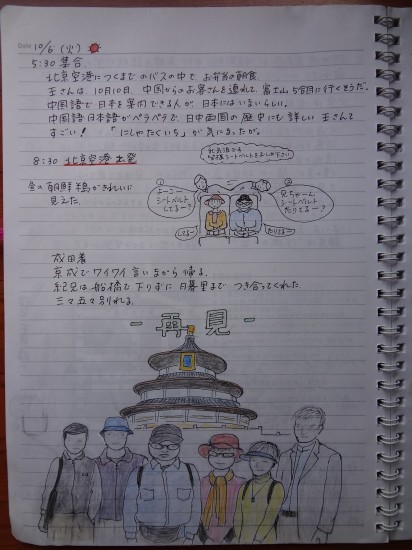 Date 10/6 (火)
5:30 集合
北京空港につくまでのバスの中で、お弁当の朝食
王さんは、10月10日、中国からのお客さんを連れて、富士山5合目に行くそうだ。
中国語で日本を案内できる人が、日本にはいないらしい。
中国語 日本語がペラペラで、日中両国の歴史にも詳しい王さんて
すごい! 「にしゃたくいち」が気になったが。
8:30 北京空港出発
シートベルトをおしめ下さい
① シートベルト してるー?
② 兄ちゃーん シートベルト たりてるー?
してるー
たりてるー
の朝鮮 がきれいに
見えた。
成田着
京成でワイワイ言いながら帰る。
紀兄は船橋で下りずに日暮里までつき合ってくれた。
三々五々別れる。
- 再見 -